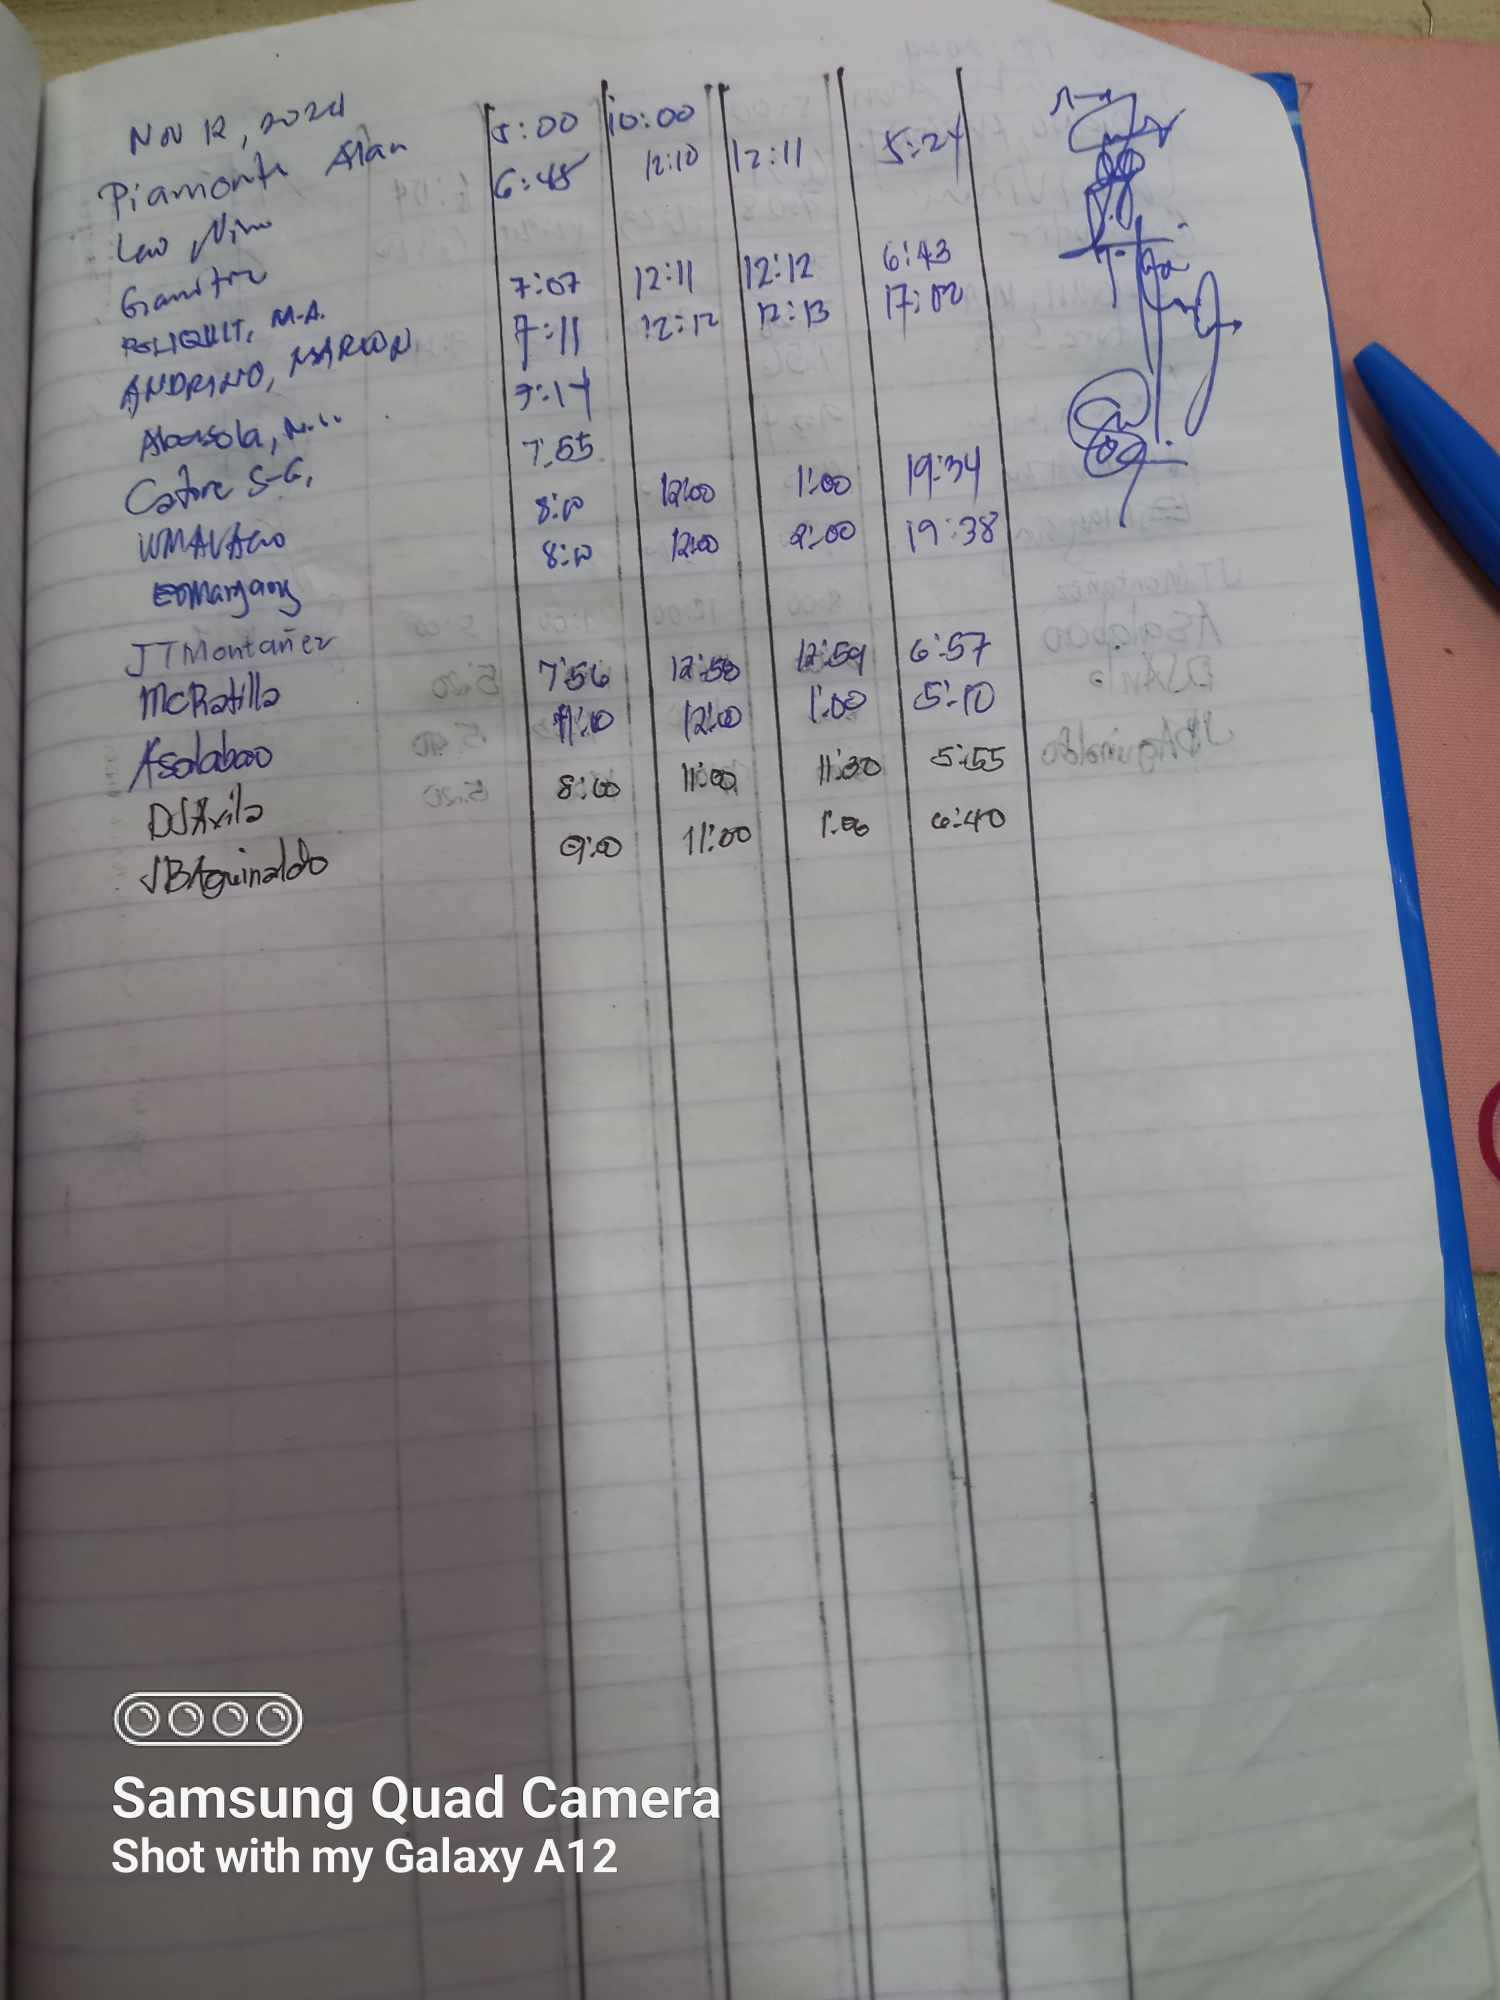 Nov 12, 2024
Piamonte Alan 5:00 10:00
Lao Nino 6:45 12:10 12:11 5:24
POLIQUIT, M.A. 7:07 12:11 12:12 6:43
ANDRINO, MARION 7:11 12:12 12:13 17:02
7:14
S.G. 7:55
8:00 12:00 1:00 19:34
8:00 12:00 2:00 19:38
JTMontañez
McRatilla 7:56 12:58 12:59 6:57
Asalabao 12:00 1:00 5:10
DJAvila 8:00 11:00 11:30 5:55
JBAguinaldo 9:00 11:00 1:00 6:40
Samsung Quad Camera
Shot with my Galaxy A12